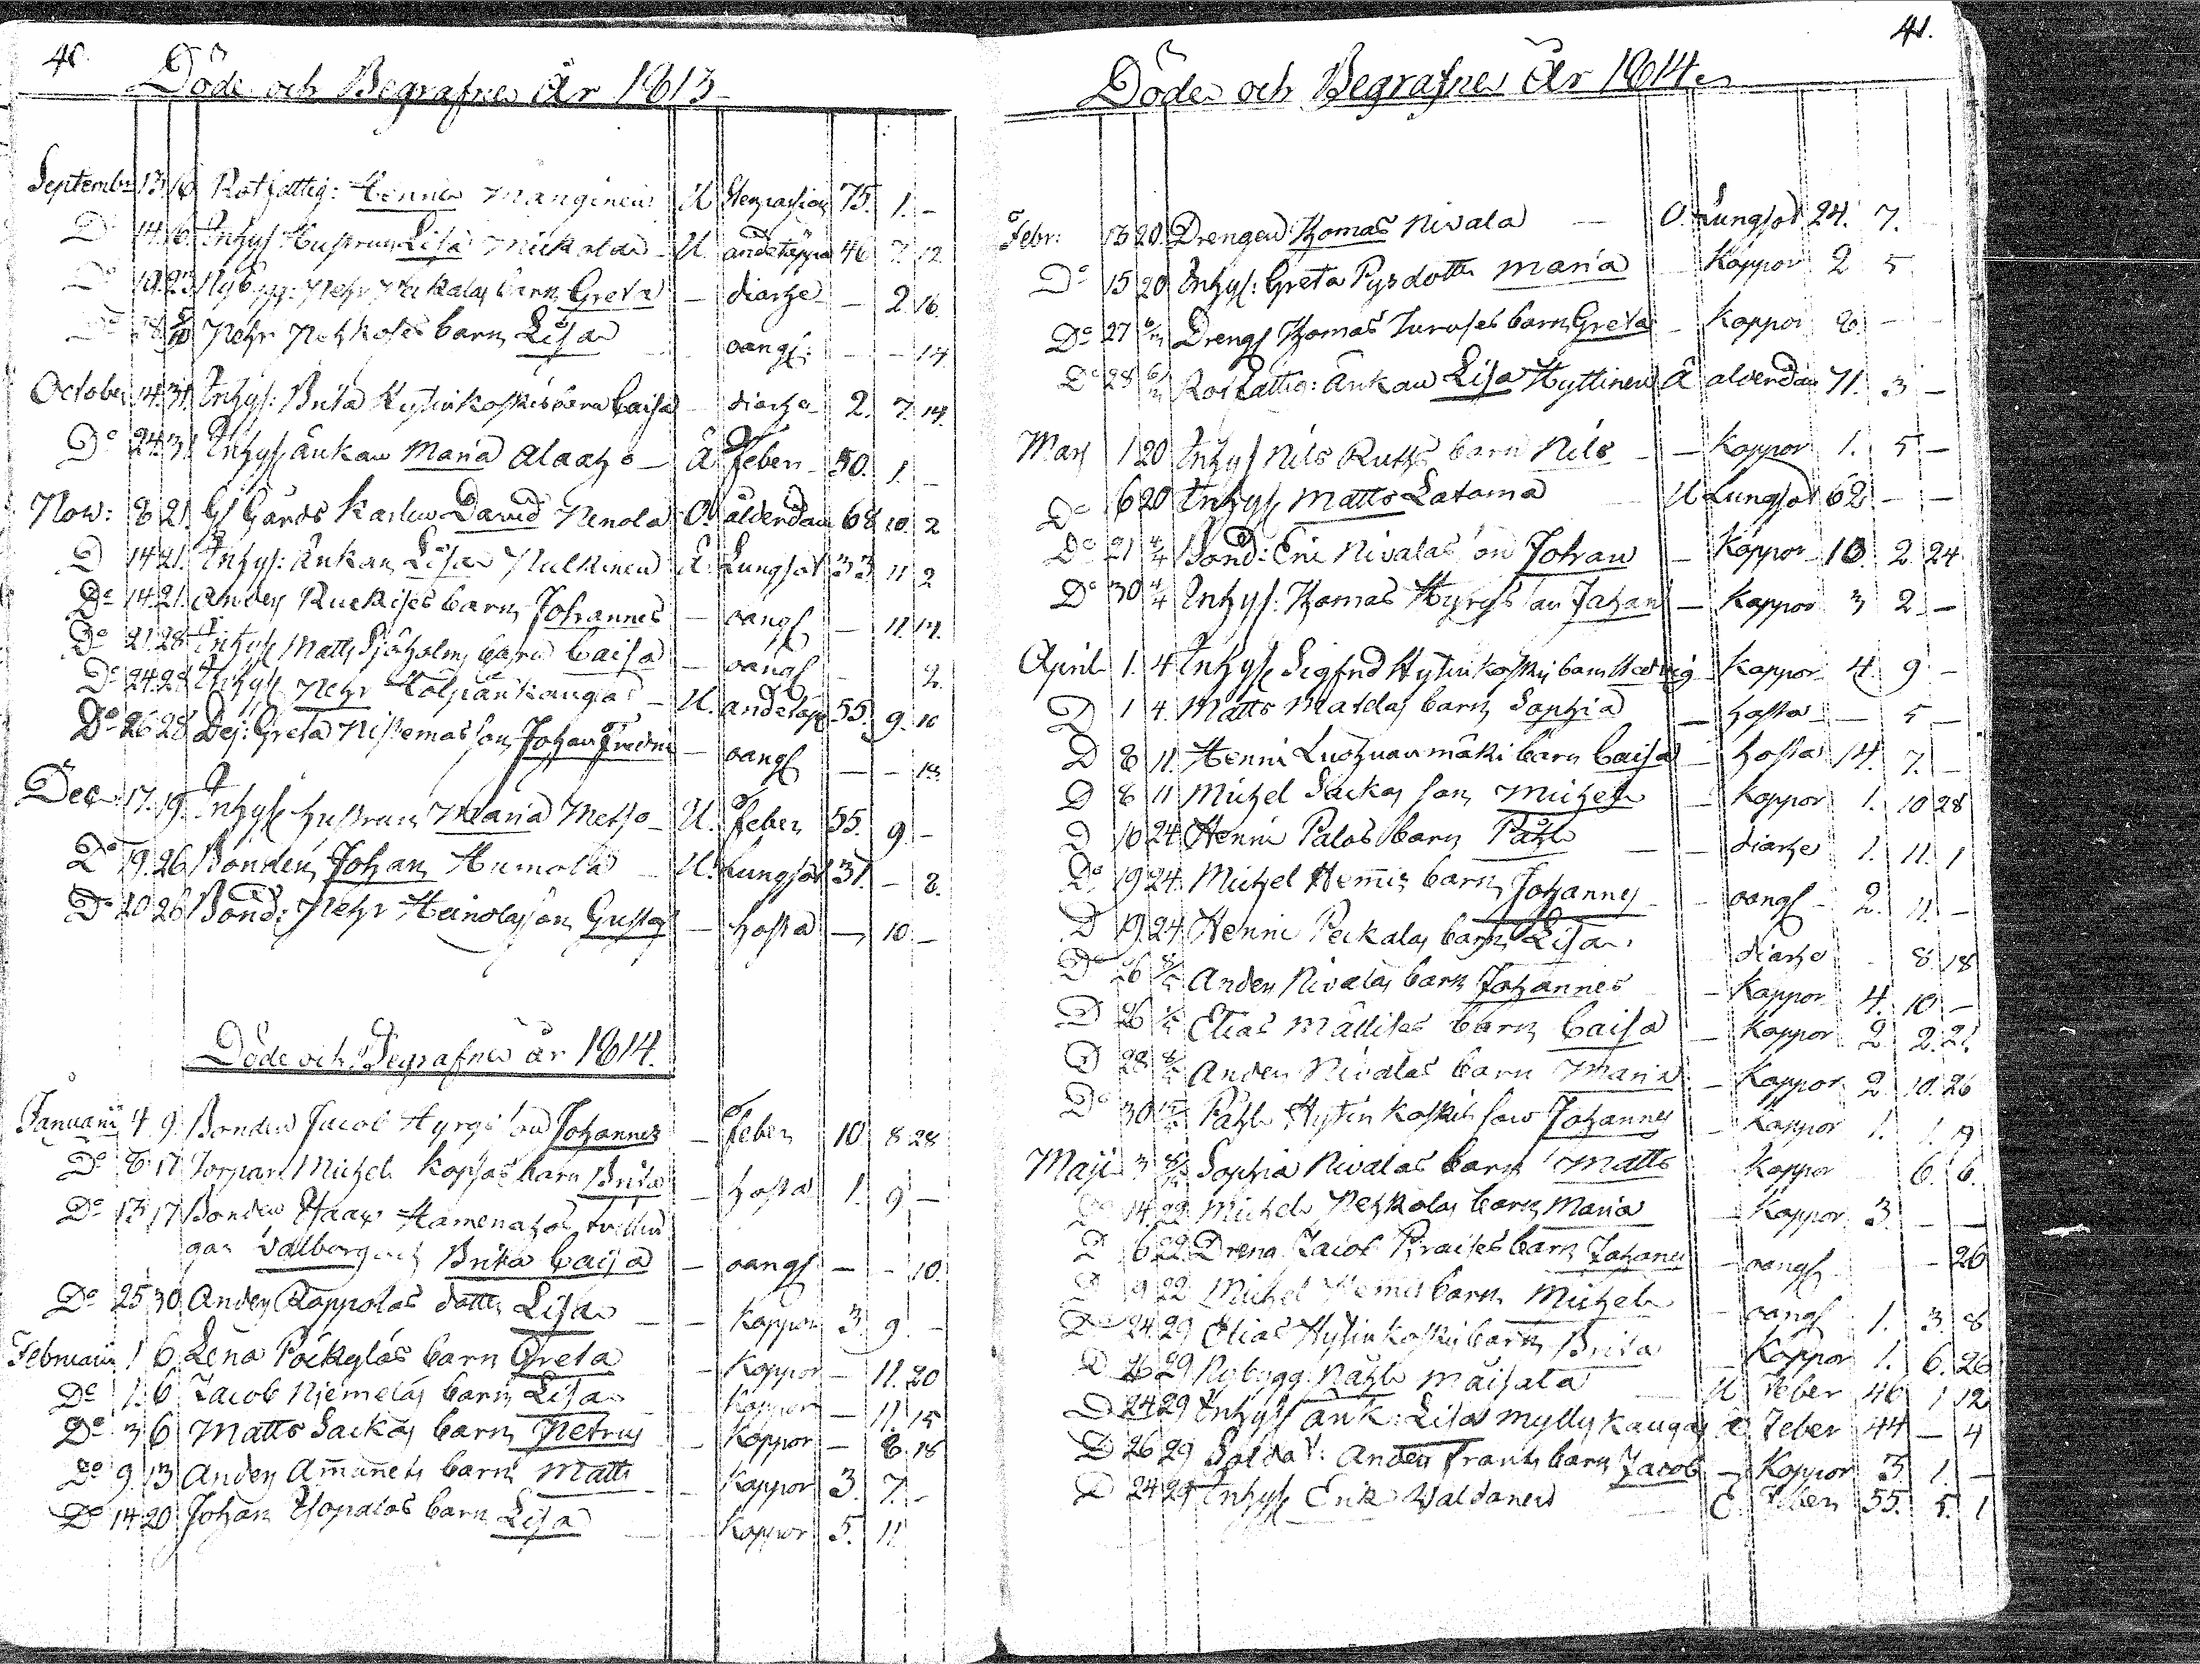 40.
Döde och Begrafne År 1813
Septembr 13 16 Rotfattig: Henric Manginen U 75. 1. –
Do 14 16 Inhys: Hustrun Lisa Mickolda U. andetäppa 46 7 12
Do 19 23 Nybygg: Pehr Peikalas barn Greta – diarhe – 2 16.
Do 28 Pehr Pehkoses barn Lisa oangf: – – 14
October 14 31 Inhys: Brita Hytinkoskis barn Caisa – diarhe 2. 7 14.
Do 24 31 Inhys: Änkan Maria Alaaho – Ä Feber 50. 1. –
Nov: 8 21 Gl Gårds Karlen David Nenola O. ålderdom 68 10 2
D 14 21. Inhys: Änkan Lisa Pulkinen Ä. Lungsot 33 11 2
Do 14 21. Anders Ruckises barn Johannes – oangf – 11. 14.
Do 21 28 Inhys Matts Sjöholms barn Caisa – oangf – 2.
Do 24 28 Inhys Pehr Kolsiänkangas – U. andetäpp 55. 9. 16
Do 26 28 Pig: Greta Niskemas son Johan Fredric – oangf – – 13
Dec 17. 19. Inhys hustrun Maria Metso – U. Feber 55. 9. –
Do 19. 26 Bonden Johan Humola – U. Lungsot 31. – 8.
Do 20 26 Bond: Pehr Heinolas son Gustaf – hosta – 10. –
Döde och Begrafne år 1814.
Januarii 4 9. Bonden Jacob Hyrys son Johannes – Feber 10 8 28
Do 8 17 Torpare Michel Kopsas barn Brita – hosta 1. 9 –
Do 13 17 Bonden Isaac Hamenahos tvillin
gar Valborg och Brita Caisa – oangf – – 10.
Do 25 30 Anders Rappolas dotter Lisa – – Koppor 3. 9. –
Februarii 1 6 Lena Pöckylås barn Greta – Koppor – 11. 20
Do 1. 6. Jacob Niemelas barn Lisa Koppor – 11. 15
Do 3 6 Matts Sackas barn Petrus – Koppor – 8. 18
Do 9. 13 Anders Ämänets barn Matts – Koppor 3. 7. –
Do 14 20 Johan Isopalos barn Lisa – Koppor 5. 11
41.
Döde och Begrafne År 1814
Febr: 13 20. Drengen Thomas Nivala – O. Lungsot 24. 7.
Do 15 20 Inhys: Greta Pyrs dotter Maria Koppor 2 5
Do 27 6/3 Drengs Thomas Turuses barn Greta – Koppor 2. –
Do 28 6/3 Rotfattig: Änkan Lisa Hyttinen Ä ålderdom 71. 3 –
Mars 1 20 Inhys Nils Ruths barn Nils – – Koppor 1. 5 –
Do 6 20 Inhys Matts Latama U Lungsot 62 – –
Do 21 4/4 Bond: Eric Nivalas son Johan – Koppor 10. 2 24
Do 30 4/4 Inhys: Thomas Hyrys son Johan – Koppor 3 2. –
April 1. 4 Inhys Sigfrid Hytinkoskis barn Hedvig – Koppor 4. 9 –
D 1 4. Matts Matdas barn Sophia – hosta – 5 –
D 8 11. Henric Luohuanmäki barn Caisa – hosta 14. 7. –
D 8 11 Michel Sackas son Michel – Koppor 1. 10 28
D 16 24 Henric Palos barn Påhl – – diarhe 1. 11. 1
Do 19 24. Michel Hemis barn Johannes – oangf – 2. 11. –
D 19. 24 Henric Peikalas barn Lisa diarhe – 8. 18
Do 26 8/5 Anders Nivalas barn Johannes – Koppor 4. 10 –
D 26 Elias Mattises barn Caisa – Koppor 2 2. 21.
D 28 8/5 Anders Nivalas barn Maria – Koppor 2. 10. 26
Do 30 Påhl Hytinkoskis son Johannes – Koppor 1. 1. 19
Maji 3 8/5 Sophia Nivalas barn Matts Koppor 6. 6.
Do 14 22 Michel Pehkolas barn Maria – Koppor 3. – –
D 6 22 Dreng Jacob Piraises barn Johannes – oangf – 26
D 9 22 Michel Hemis barn Michel – oangf 1. 3. 8
Do 24 29 Elias Hytinkoskis barn Brita – Koppor 1. 6. 26
D 26 29 Nybygg: Påhl Maisala U Feber 46 1 12
D 24 29 Inhys änk: Lisa Myllykangas Ä Feber 44 – 4
D 26 29 Soldat: Anders Frants barn Jacob – Koppor 3. 1. –
D 24 29 Inhys Erik Valdanen E. Feber 55. 5. 1